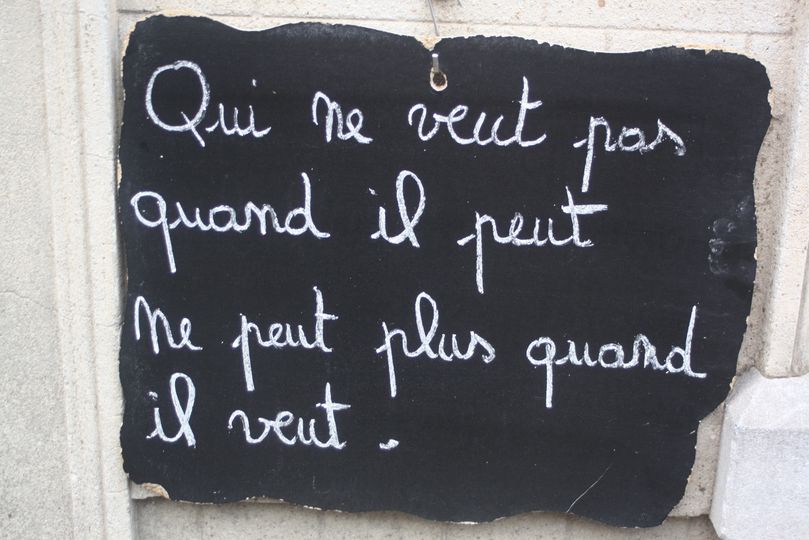 Qui ne veut pas
quand il peut
ne peut plus quand
il veut.